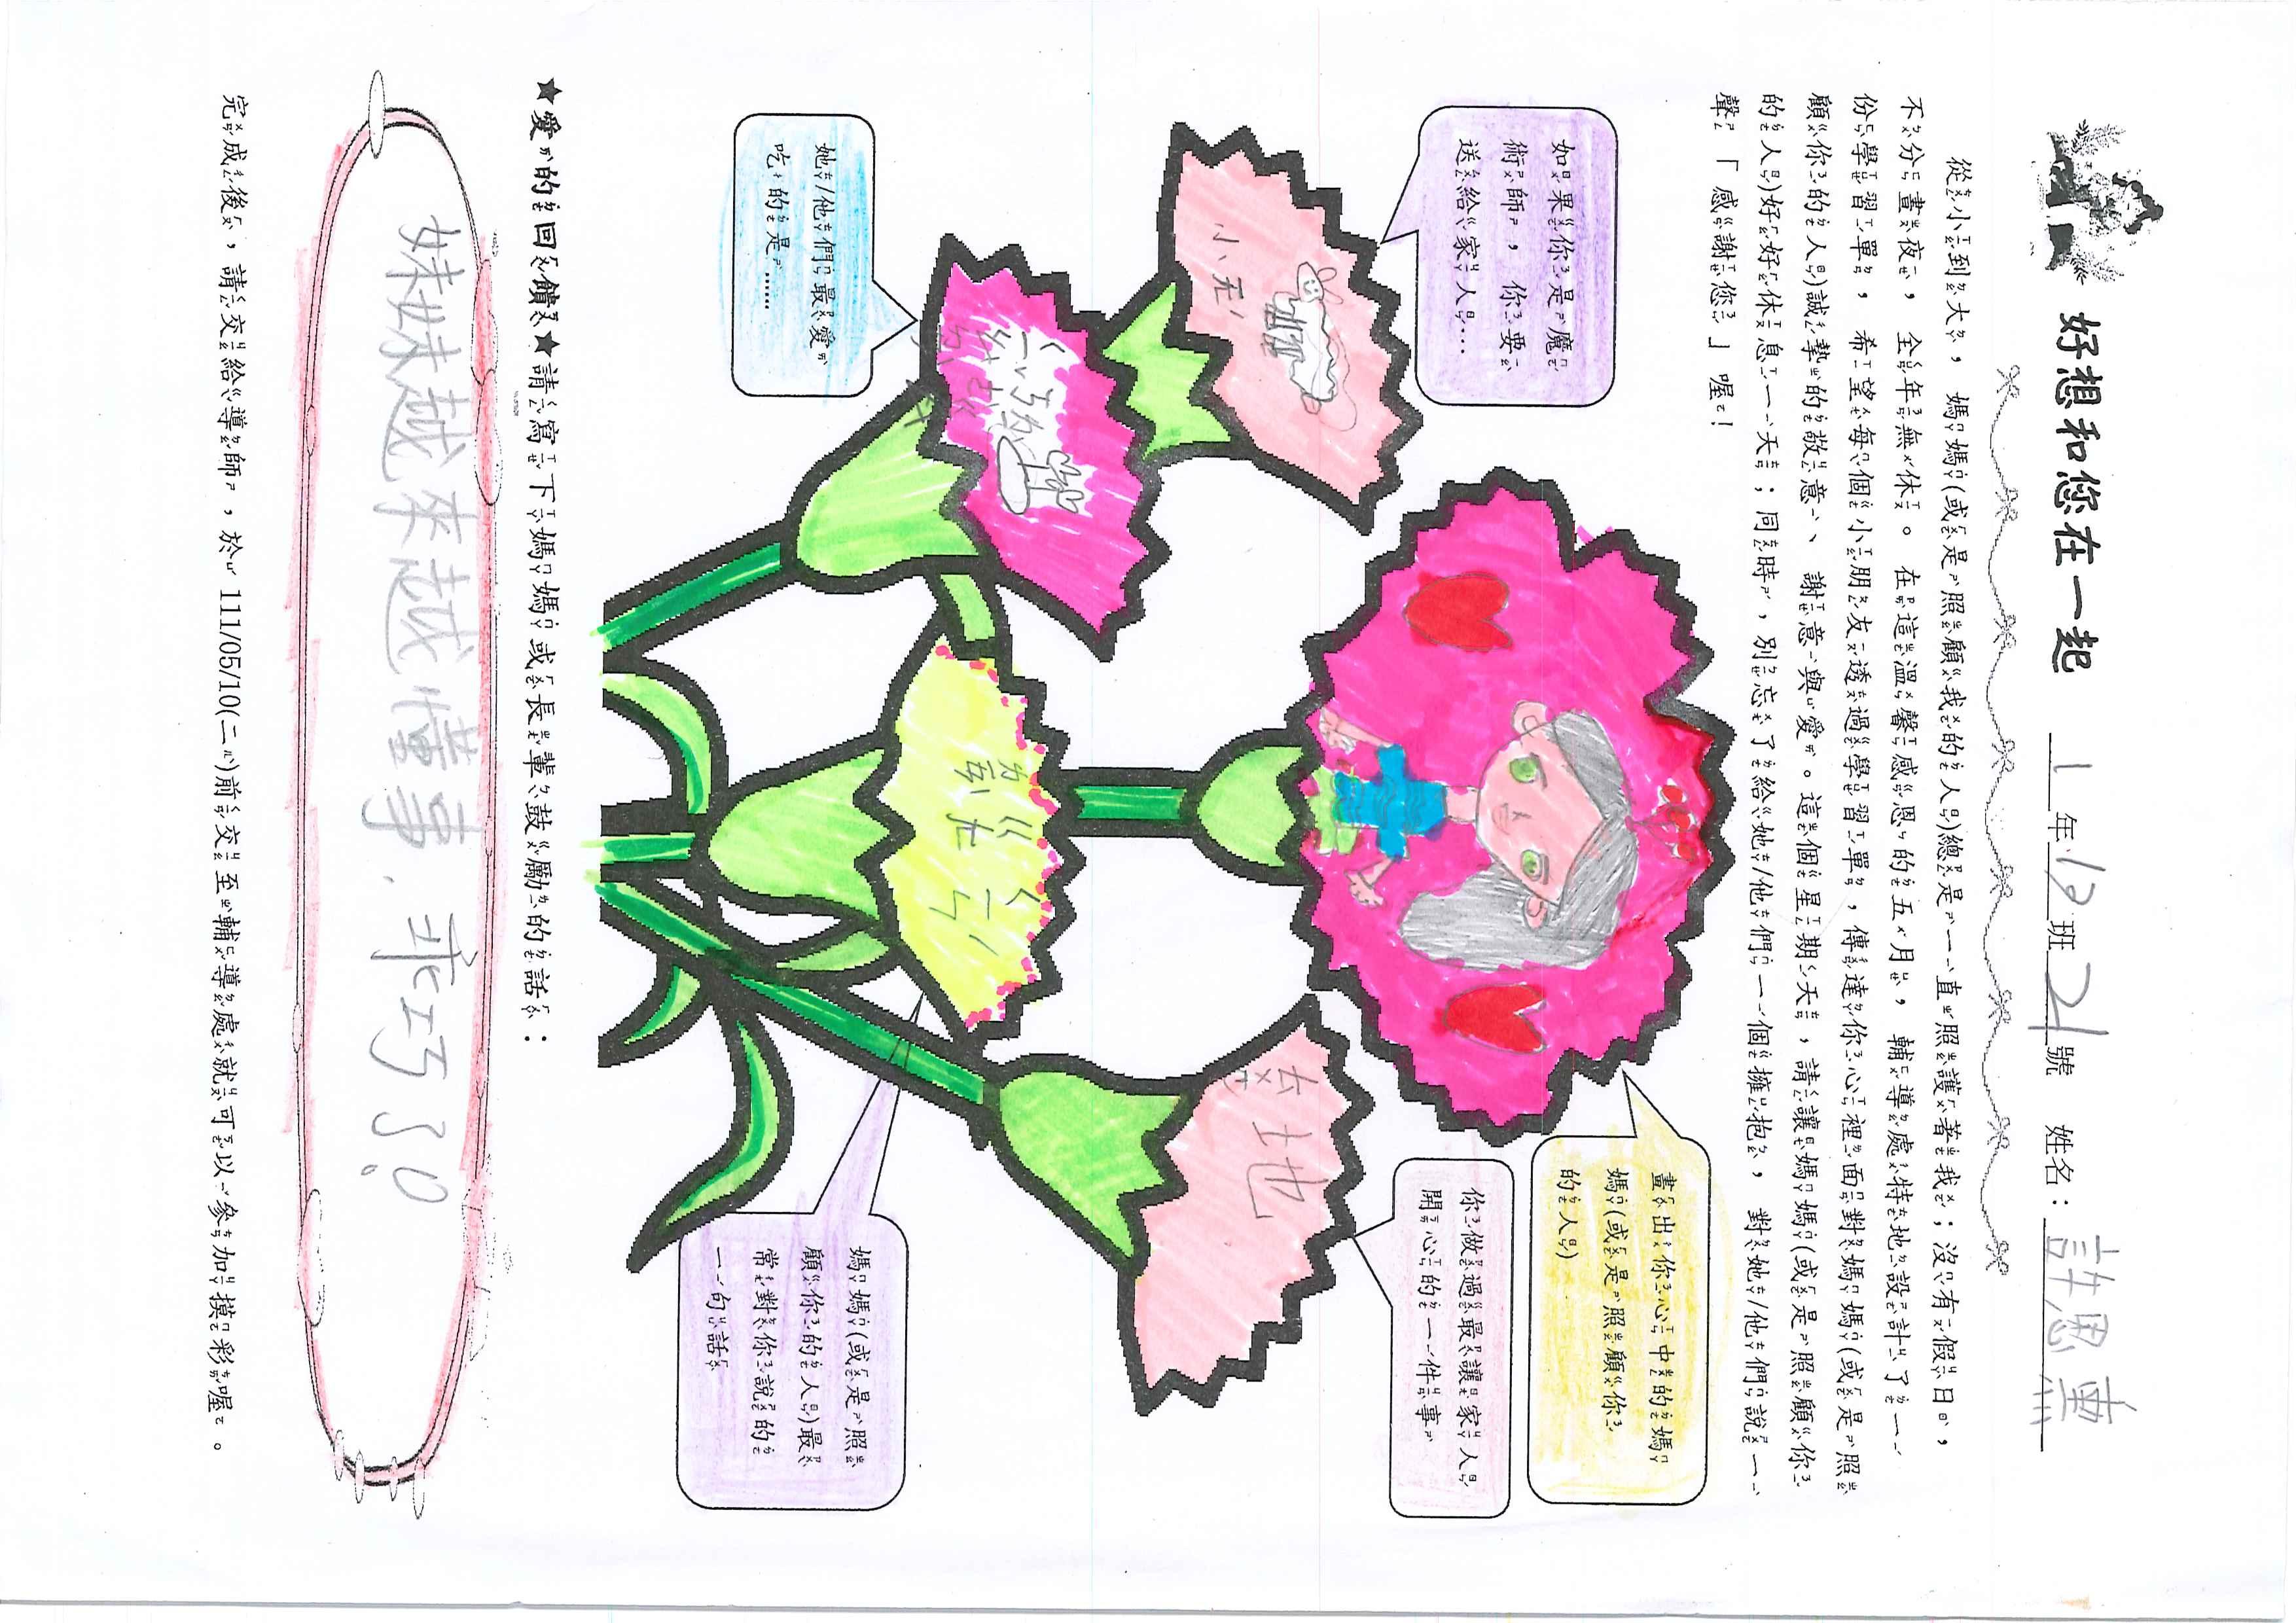 好想和您在一起 1年12班21號 姓名：許恩熏
從小到大，媽媽(或是照顧我的人)總是一直照護著我；沒有假日，
不分晝夜，全年無休。在這溫馨感恩的五月，輔導處特地設計了一
份學習單，希望每個小朋友透過學習單，傳達你心裡面對媽媽(或是照
顧你的人)誠摯的敬意、謝意與愛。這個星期天，請讓媽媽(或是照顧你
的人)好好休息一天；同時，別忘了給她/他們一個擁抱，對她/他們說一
聲「感謝您」喔！
如果你是魔
術師，你要
送給家人...
畫出你心中的媽
媽(或是照顧你
的人)
你做過最讓家人
開心的一件事
她/他們最愛
吃的是......
媽媽(或是照
顧你的人)最
常對你說的
一句話
★愛的回饋★請寫下媽媽或長輩鼓勵的話：
妹妹越來越懂事，乖巧了。
完成後，請交給導師，於 111/05/10(二)前交至輔導處就可以參加摸彩喔。